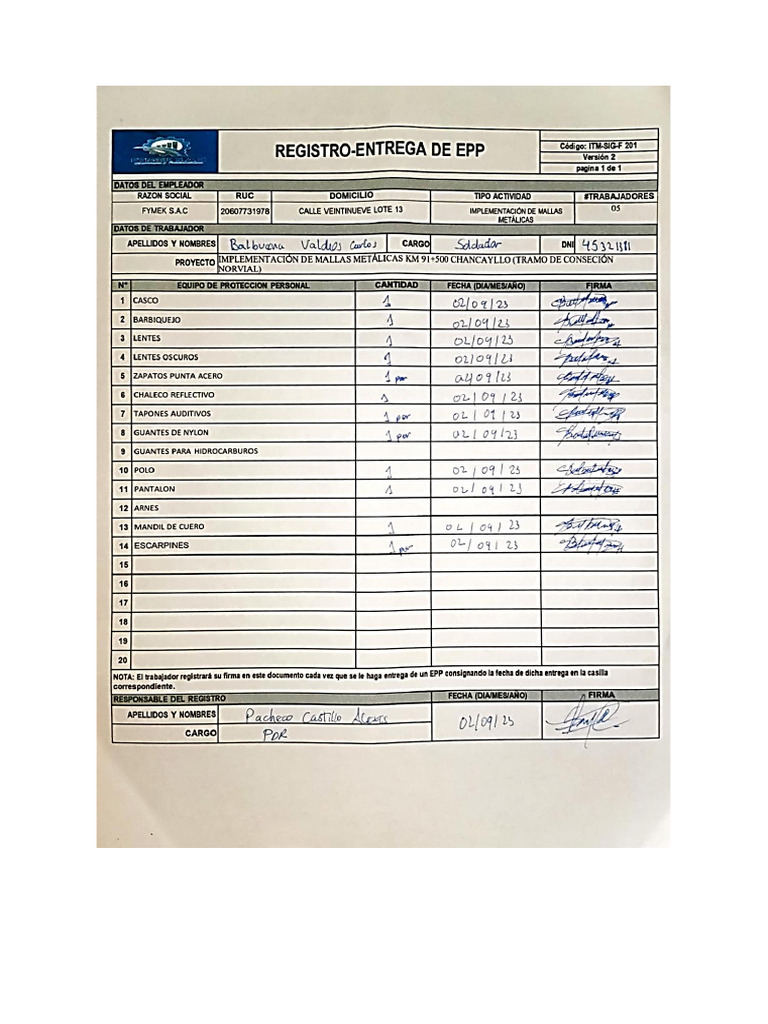 REGISTRO-ENTREGA DE EPP
Código: ITM-SIG-F 201
Versión 2
pagina 1 de 1
DATOS DEL EMPLEADOR
RAZON SOCIAL RUC DOMICILIO TIPO ACTIVIDAD #TRABAJADORES
FYMEK S.A.C 20607731978 CALLE VEINTINUEVE LOTE 13 IMPLEMENTACIÓN DE MALLAS METÁLICAS 05
DATOS DE TRABAJADOR
APELLIDOS Y NOMBRES Balbuena Valdios Carlos CARGO Soldador DNI 45321381
PROYECTO IMPLEMENTACIÓN DE MALLAS METÁLICAS KM 91+500 CHANCAYLLO (TRAMO DE CONSECIÓN
NORVIAL)
N° EQUIPO DE PROTECCION PERSONAL CANTIDAD FECHA (DIA/MES/AÑO) FIRMA
1 CASCO 1 02/09/23
2 BARBIQUEJO 1 02/09/23
3 LENTES 1 02/09/23
4 LENTES OSCUROS 1 02/09/23
5 ZAPATOS PUNTA ACERO 1 par 02/09/23
6 CHALECO REFLECTIVO 1 02/09/23
7 TAPONES AUDITIVOS 1 par 02/09/23
8 GUANTES DE NYLON 1 par 02/09/23
9 GUANTES PARA HIDROCARBUROS
10 POLO 1 02/09/23
11 PANTALON 1 02/09/23
12 ARNES
13 MANDIL DE CUERO 1 02/09/23
14 ESCARPINES 1 par 02/09/23
15
16
17
18
19
20
NOTA: El trabajador registrará su firma en este documento cada vez que se le haga entrega de un EPP consignando la fecha de dicha entrega en la casilla
correspondiente.
RESPONSABLE DEL REGISTRO FECHA (DIA/MES/AÑO) FIRMA
APELLIDOS Y NOMBRES Pacheco Castillo Alexis 02/09/23
CARGO PDR